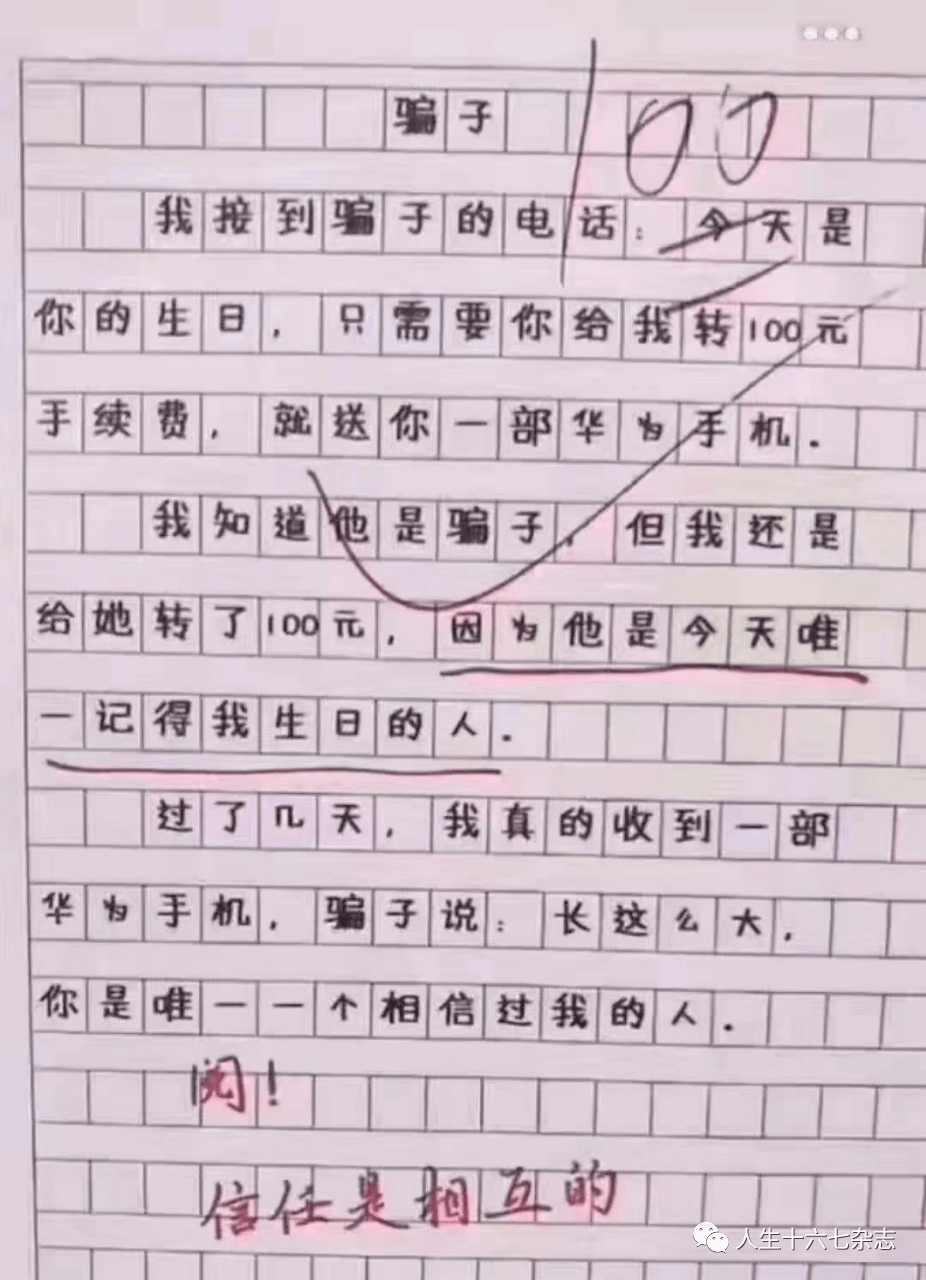 骗子
100
我接到骗子的电话：今天是
你的生日，只需要你给我转100元
手续费，就送你一部华为手机．
我知道他是骗子，但我还是
给她转了100元，因为他是今天唯
一记得我生日的人．
过了几天，我真的收到一部
华为手机，骗子说：长这么大，
你是唯一一个相信过我的人．
阅！
信任是相互的
人生十六七杂志